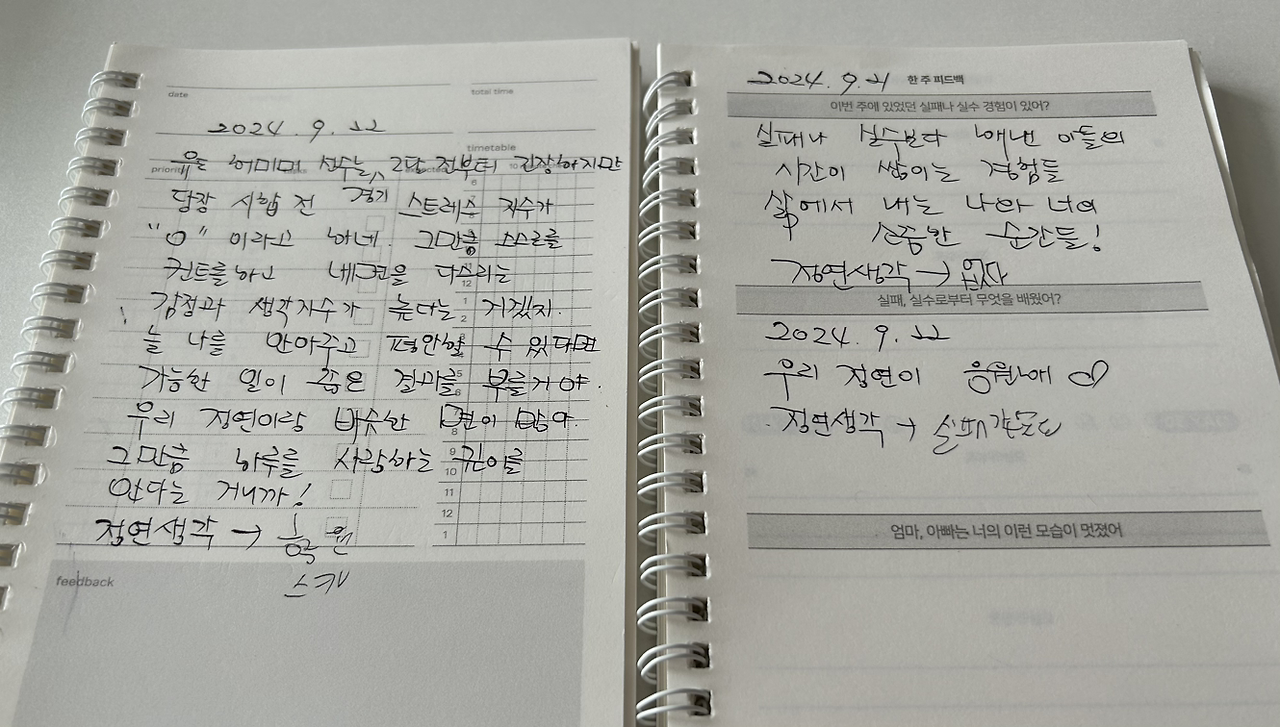 date
total time
2024. 9. 22
timetable
유도 허미미 선수는, 2달 전부터 긴장하지만
당장 시합 전 경기 스트레스 지수가
"0" 이라고 하네. 그만큼 스스로를
컨트롤하고 멘탈을 다스리는
감정과 생각지수가 높다는 거겠지.
늘 나를 안아주고 평안할 수 있다면
가능한 일이 좋은 결과를 부를거야.
우리 정연이랑 비슷한 면이 많아.
그만큼 하루를 사랑하는 의미를
안다는 거니까!
정연생각 →
feedback
2024. 9. 21 한 주 피드백
이번 주에 있었던 실패나 실수 경험이 있어?
실패나 실수보다 해낸 아들의
시간이 쌓이는 경험들
삶에서 내는 나와 너의
소중한 순간들!
정연생각 → 없다
실패, 실수로부터 무엇을 배웠어?
2024. 9. 22
우리 정연이 응원해
정연생각 →
엄마, 아빠는 너의 이런 모습이 멋졌어